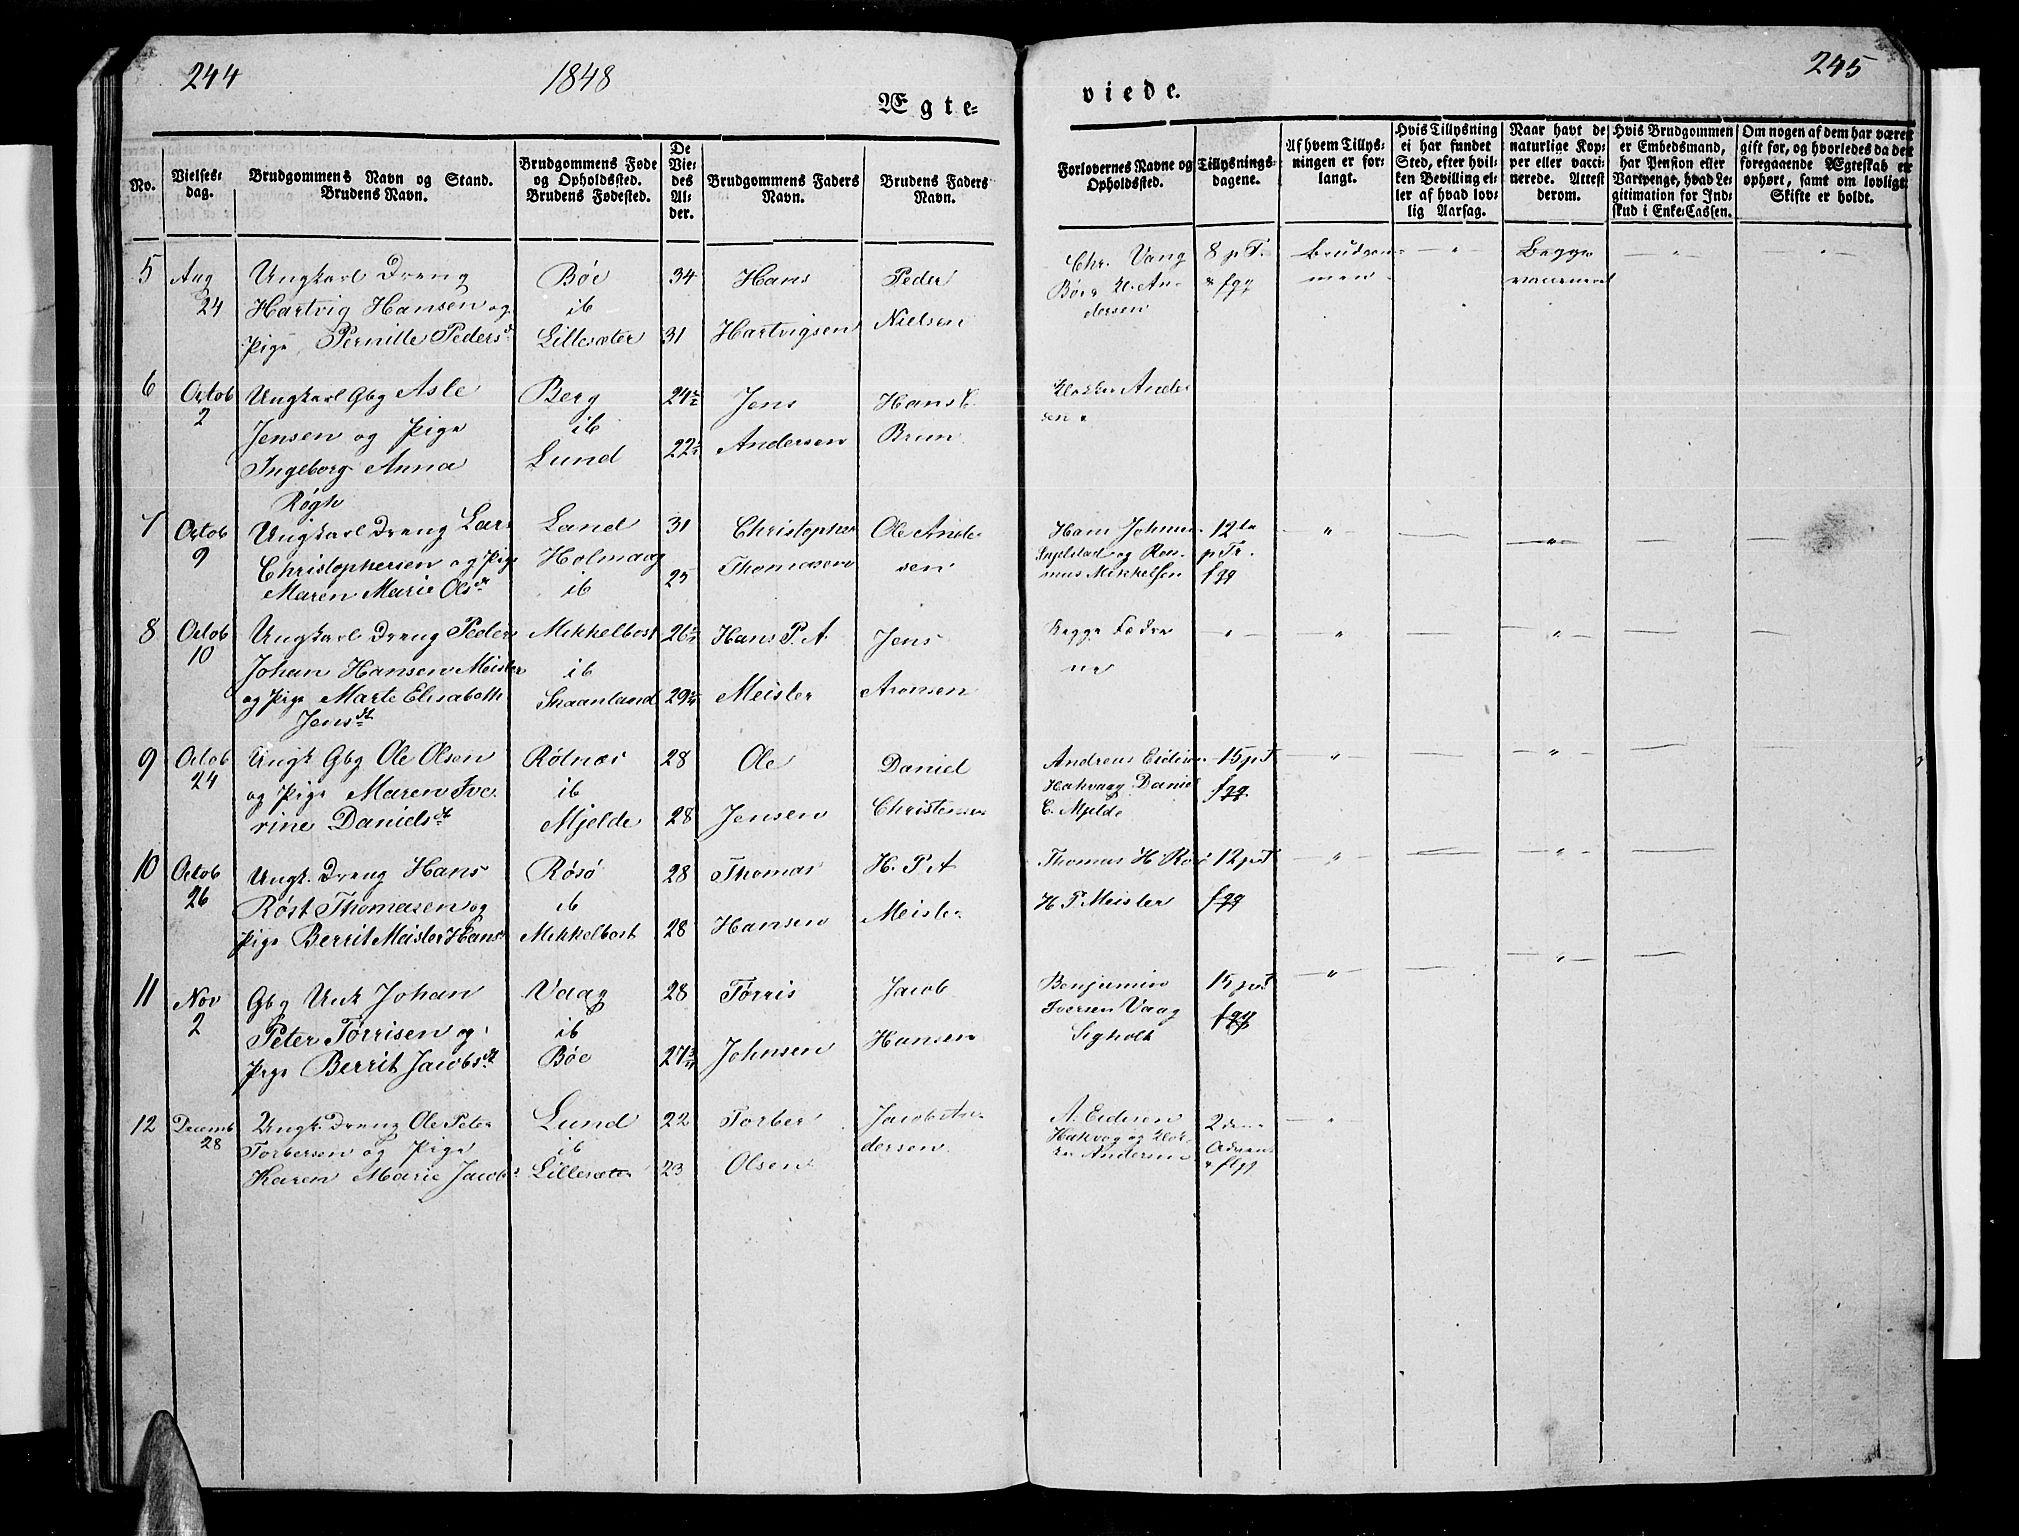 244
1848
245
Ægte=
viede.
No.
Vielses-
dag.
Brudgommens Navn og Stand.
Brudens Navn.
Brudgommens Føde
og Opholdssted.
Brudens Fødested.
De
Vie-
des
Al-
der.
Brudgommens Faders
Navn.
Brudens Faders
Navn.
Forlovernes Navne og
Opholdssted.
Tillysnings-
dagene.
Af hvem Tillys-
ningen er for-
langt.
Hvis Tillysning
ei har fundet
Sted, efter hvil-
ken Bevilling el-
ler af hvad lov-
lig Aarsag.
Naar havt de
naturlige Kop-
per eller vacci-
nerede. Attest
derom.
Hvis Brudgommen
er Embedsmand,
har Pension eller
Vartpenge, hvad Le-
gitimation for Ind-
skud i Enke-Cassen.
Om nogen af dem har været
gift før, og hvorledes da det
foregaaende Ægteskab er
ophørt, samt om lovligt
Skifte er holdt.
5
Aug
24
Ungkarl Dreng
Hartvig Hansen og
Pige Pernille Pedersdt
Bøe
ib
Lillesæter
34
31
Hans
Hartvigsen
Peder
Nielsen
Chr. Vang
Böe Kl. An-
dersen
8 p T.
& fgg
Brudgom-
men
Begge
vaccineret
6
Octob
2
Ungkarl Gbg Asle
Jensen og Pige
Ingeborg Anna
Røgh
Berg
ib
Lund
24½
22½
Jens
Andersen
Hans
Brun
Klokker Ander
sen
7
Octob
9
Ungkarl Dreng Lars
Christophersen og Pige
Maren Marie Olsdt
Land
Holmaag
ib
31
25
Christopher
Thomasen
Ole Ander
sen
Hans Johns
og Ras-
mus Mikkelsen
12te
p Tr.
fgg
8
Octob
10
Ungkarl Dreng Peder
Johan Hansen Meisler
og Pige Marte Elisabeth
Jensdt
Mikkelbost
ib
Skaanland
26½
29¼
Hans P. A
Meisler
Jens
Aronsen
Begge Fædre
ne
9
Octob
24
Ungk Gbg Ole Olsen
og Pige Maren Ive
rine Danielsdt
Rølnæs
ib
Mjelde
28
28
Ole
Jensen
Daniel
Christensen
Andreas Eidisen
Hakvaag Daniel
C. Mjelde
15 p T
fgg.
10
Octob
26
Ungk. Dreng Hans
Røst Thomasen og
Pige Berrit Meisler Hansd
Røsø
ib
Mikkelbost
28
28
Thomas
Hansen
H. P. A
Meisler
Thomas H. Røsø
H. P. Meisler
12 p T
fgg
11
Nov
2
Gbg Unk Johan
Peter Tørrisen og
Pige Berrit Jacobsdt
Vaag
ib
Bøe
28
27¾
Tørris
Johnsen
Jacob
Hansen
Benjamin
Iversen Vaag
15 p T
fgg
12
Decemb
28
Ungk. Dreng Ole Peter
Torbersen og Pige
Karen Marie Jacobs
Lund
ib
Lillesæter
22
23
Torber
Olsen
Jacob An-
dersen
A. Eidisen
Hakvog og Klok-
ker Andersen
2den
Advent
& flgg